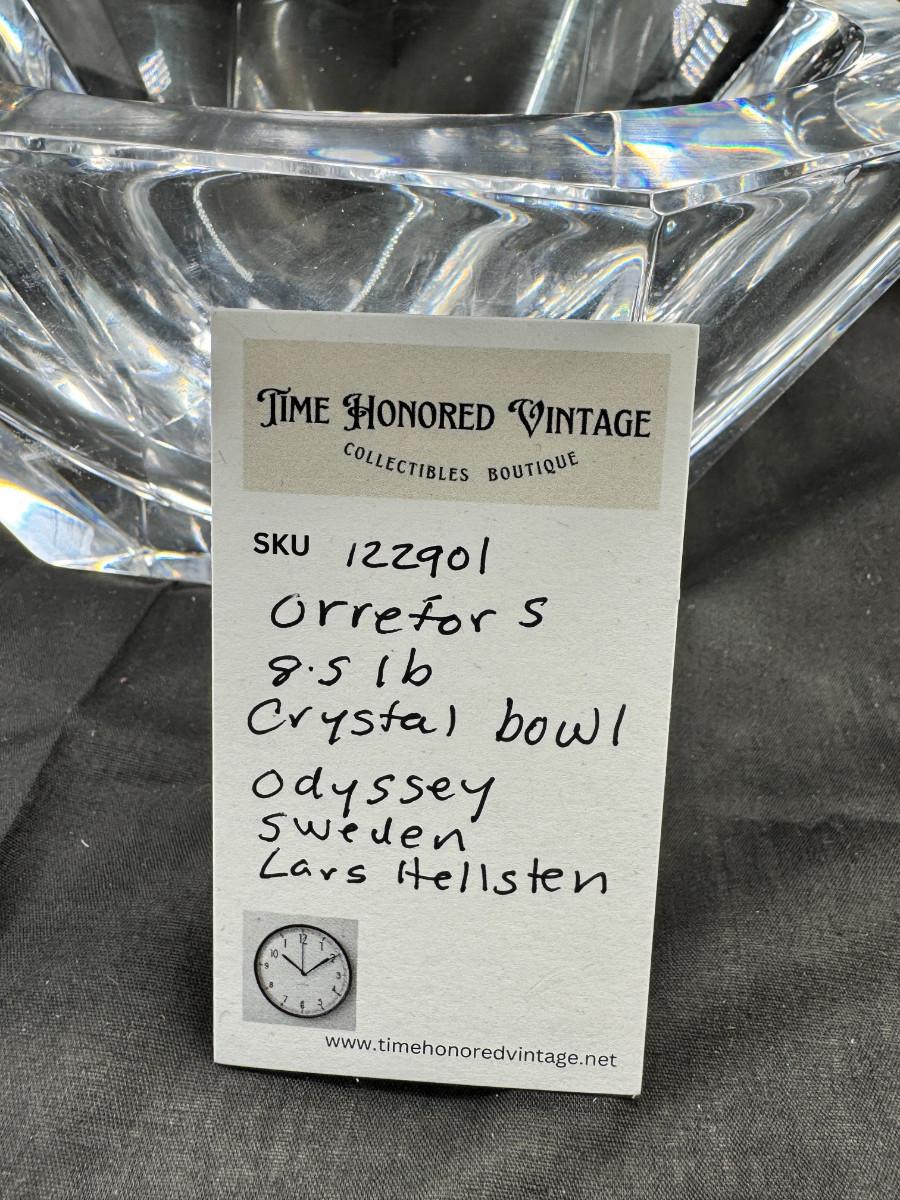 TIME HONORED VINTAGE
COLLECTIBLES BOUTIQUE
SKU 122901
Orrefors
8.5 lb
Crystal bowl
Odyssey
Sweden
Lars Hellsten
12
1
2
3
4
5
6
7
8
9
10
1
www.timehonoredvintage.net